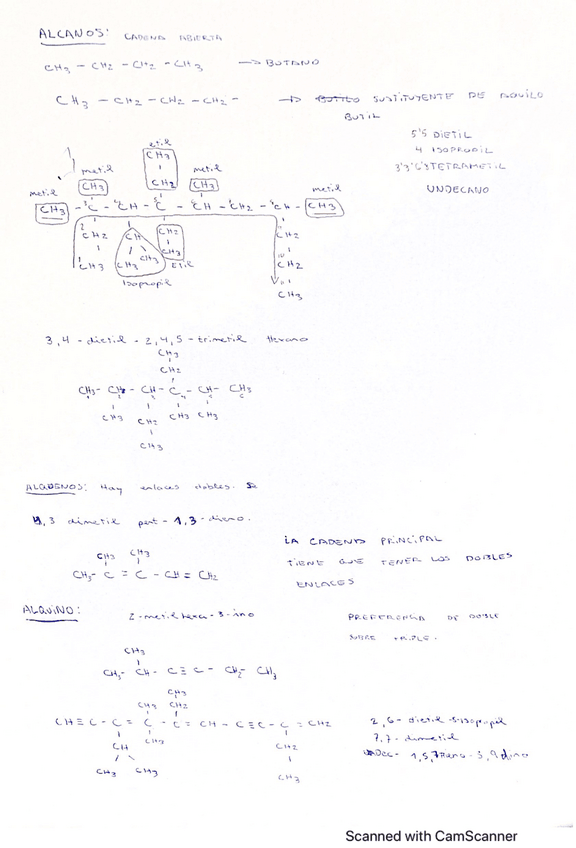 ALCANOS: CADENA ABIERTA
CH3 - CH2 - CH2 - CH3 → BUTANO
CH3 - CH2 - CH2 - CH2 - → SUSTITUYENTE DE
BUTIL
5'5 DIETIL
4 ISOPROPIL
TETRAMETIL
UNDECANO
etil
CH3
metil metil
CH3 CH2 CH3
metil metil
CH3 - C - CH - C - CH - CH2 - CH - CH3
CH2 CH CH2 CH2
CH3 CH3 CH3 CH3 CH2
Etil
Isopropil
CH3
3,4 - dietil - 2,4,5 - trimetil Hexano
CH3
CH2
CH3 - CH - CH - C - CH - CH3
CH3 CH2 CH3 CH3
CH3
ALQUENOS: Hay enlaces dobles.
dimetil pent - 1,3 - dieno.
LA CADENA PRINCIPAL
TIENE QUE TENER LOS DOBLES
ENLACES
CH3 CH3
CH3 - C = C - CH = CH2
ALQUINO: 2 - metil hexa - 3 - ino
PREFERENCIA DE DOBLE
SOBRE TRIPLE.
CH3
CH3 - CH - C ≡ C - CH2 - CH3
CH3
CH3 CH2
CH ≡ C - C = C - C = CH - C ≡ C - C = CH2
CH CH3 CH2
CH3 CH3 CH3
2,6 - dietil isopropil
7,7 - dimetil
Scanned with CamScanner